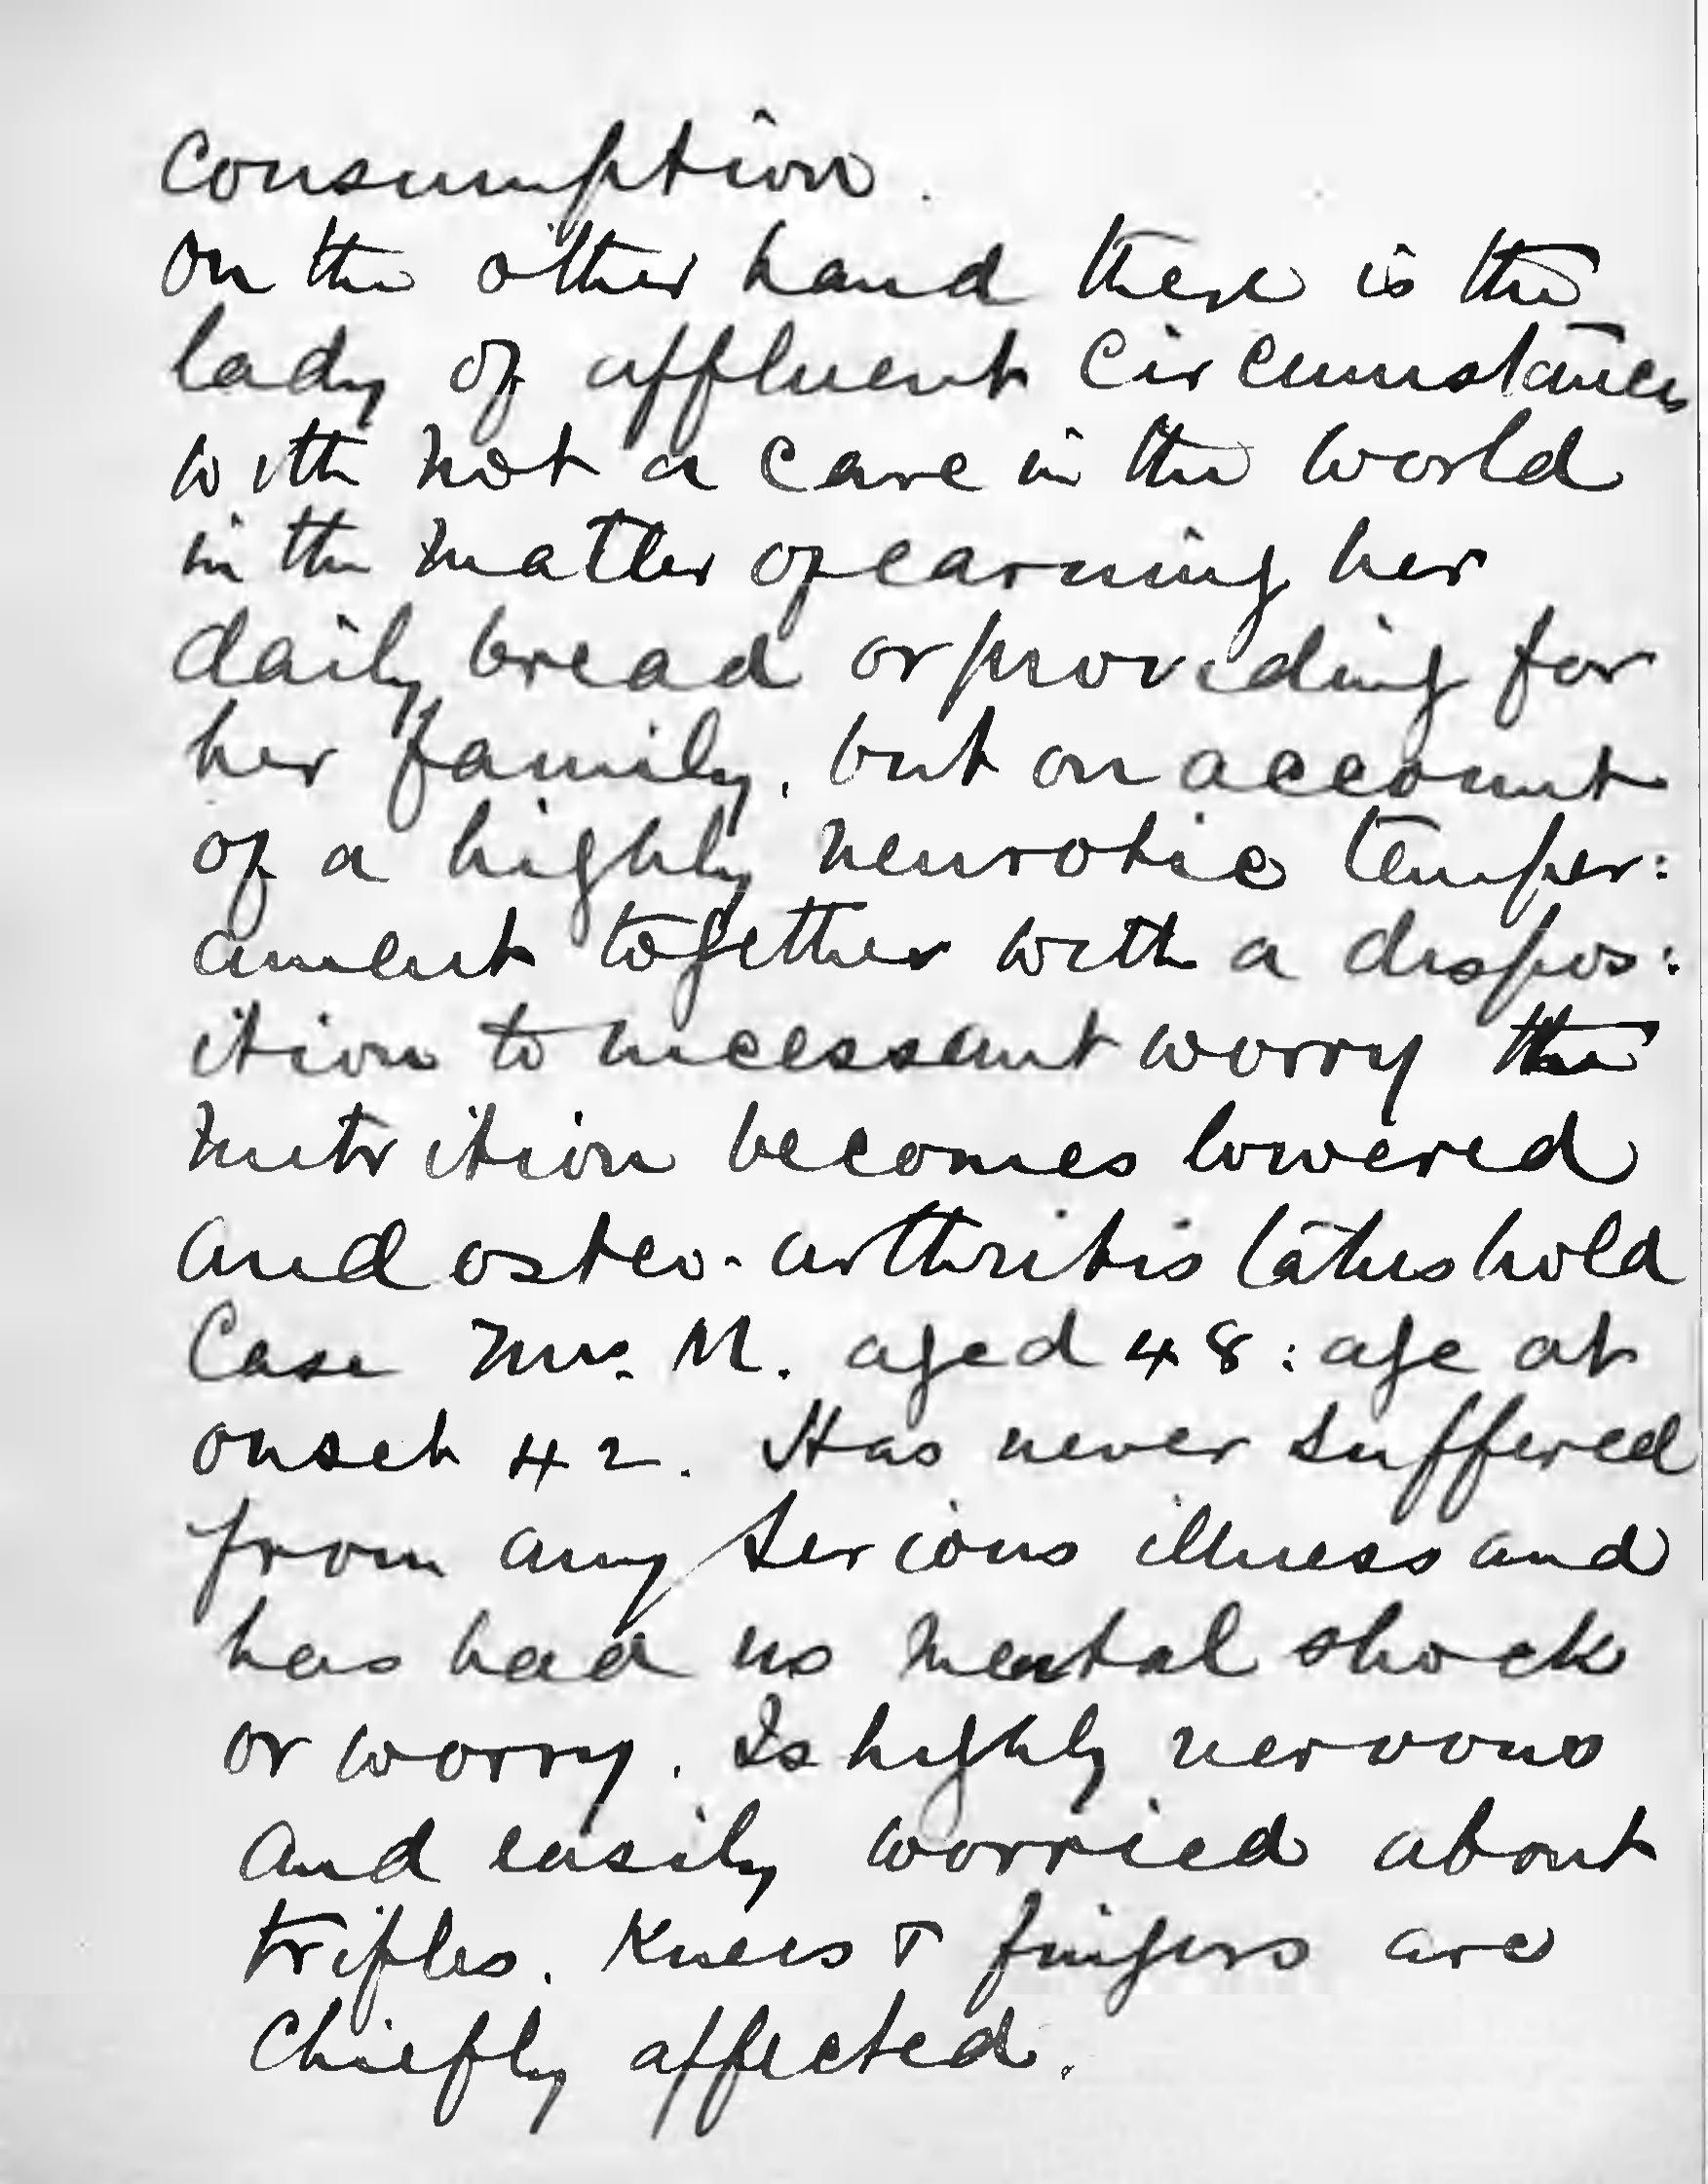 Consumption.
On the other hand there is the
lady of affluent circumstances
with not a care in the world
in the matter of earning her
daily bread or providing for
her family, but on account
of a highly neurotic temper:
ament together with a dispos:
ition to incessant worry the
nutrition becomes lowered
and osteo-arthritis takes hold
Case Mrs. M. aged 48: age at
onset 42. Has never suffered
from any serious illness and
has had no mental shock
or worry. Is highly nervous
and easily worried about
trifles. Knees & fingers are
chiefly affected.